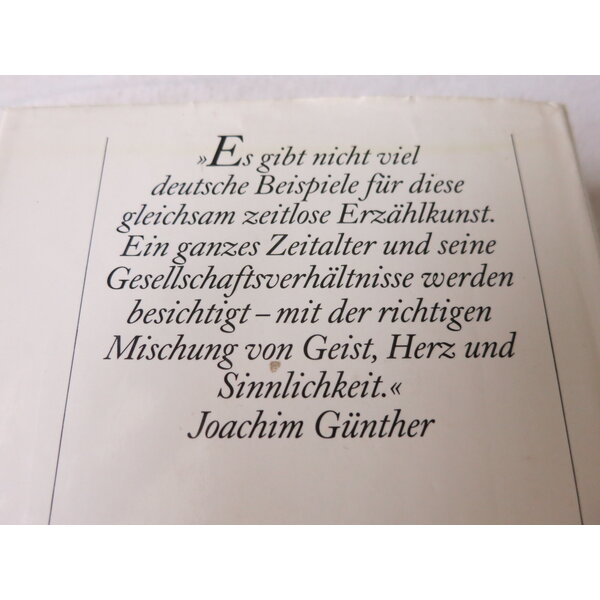 »Es gibt nicht viel
deutsche Beispiele für diese
gleichsam zeitlose Erzählkunst.
Ein ganzes Zeitalter und seine
Gesellschaftsverhältnisse werden
besichtigt – mit der richtigen
Mischung von Geist, Herz und
Sinnlichkeit.«
Joachim Günther